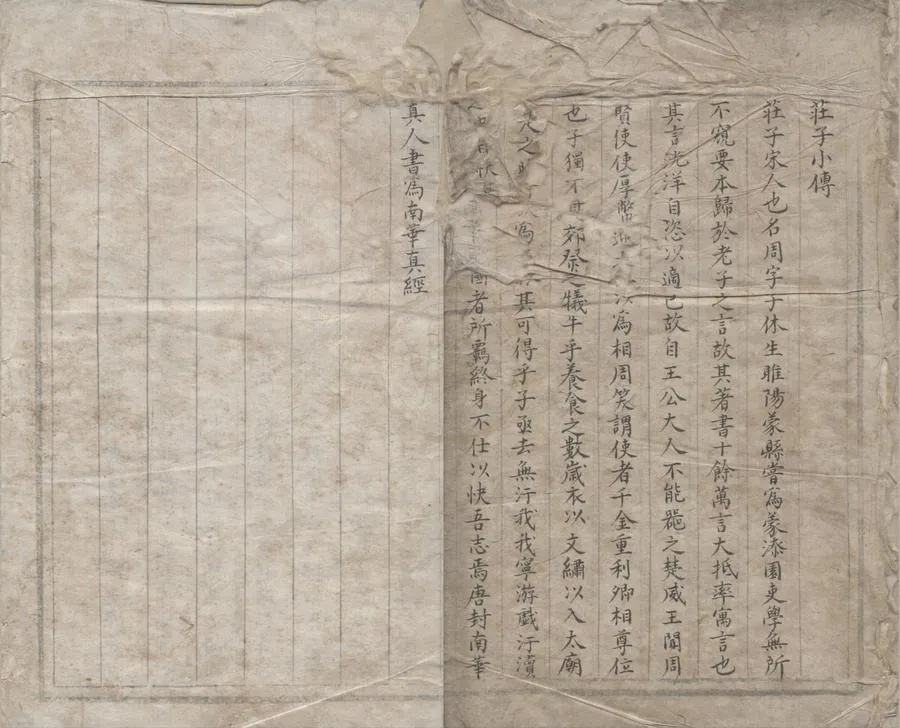 莊子小傳
莊子宋人也名周字子休生睢陽蒙縣甞爲蒙漆園吏學無所
不窺要本歸於老子之言故其著書十餘萬言大抵率寓言也
其言洸洋自恣以適己故自王公大人不能噐之楚威王聞周
賢使使厚幣迎 以爲相周笑謂使者千金重利卿相尊位
也子獨不 郊祭之犧牛乎養食之數歲衣以文繡以入太廟
是之時 爲 其可得乎子亟去無汙我我寧游戲汙瀆
快 國者所羈終身不仕以快吾志焉唐封南華
真人書爲南華真經